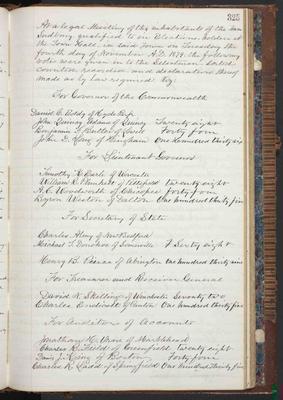 325
At a legal Meeting of the inhabitants of the town
Sudbury qualified to in Elections holden at
the Town Hall in said Town on Tuesday the
fourth day of November A.D. 1879 the following
votes were given in to the Selectmen, sorted
counted, recorded and declaration thereof
made as by law required. Viz.
For Governor of the Commonwealth
Daniel C. Eddy of Hyde Park
John Quincy Adams of Quincy Twenty eight
Benjamin F. Butler of Lowell Forty four
John D. Long of Hingham One Hundred thirty six
For Lieutenant Governor
Timothy K. Earle of Worcester
William R. Plunkett of Pittsfield twenty eight
A. C. Woodworth of Chicopee forty four
Byron Weston of Dalton One hundred thirty five
For Secretary of State
Charles Almy of New Bedford
Michael T. Donohoe of Somerville Seventy eight
Henry B. Peirce of Abington One hundred thirty nine
For Treasurer and Receiver General
David N. Skillings of Winchester Seventy two
Charles Endicott of Canton One hundred thirty five
For Auditor of Accounts
Jonathan H. Orne of Marblehead
Charles R. Field of Greenfield twenty eight
Davis J. King of Boston Forty four
Charles R. Ladd of Springfield One Hundred Thirty five